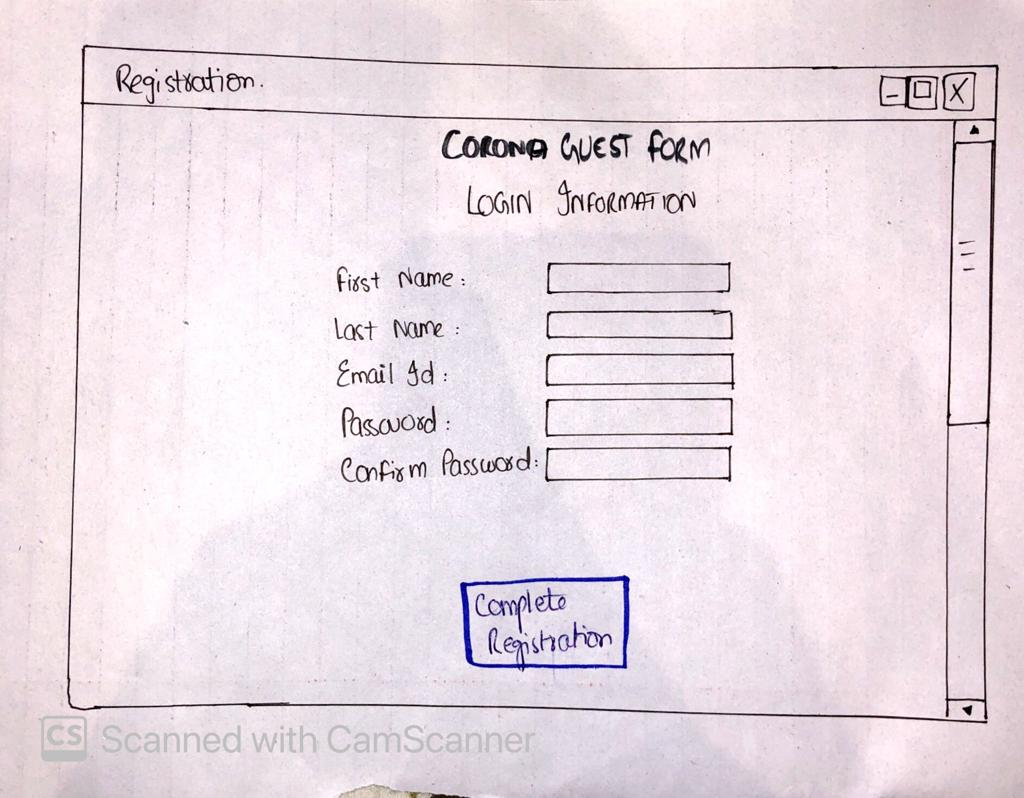 Registration.
CORONA GUEST FORM
LOGIN INFORMATION
First Name :
Last Name :
Email Id :
Password :
Confirm Password :
Complete
Registration
CS Scanned with CamScanner